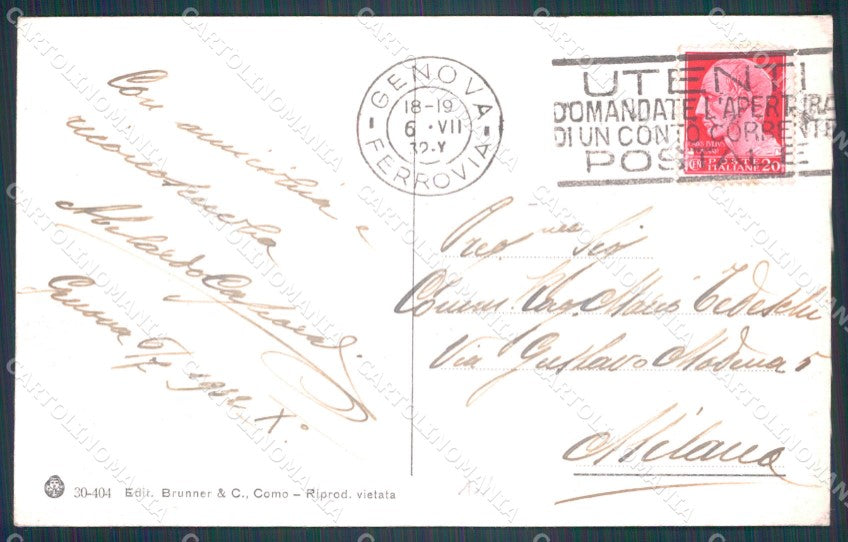 Con amicizia e
riconoscenza
Abelardo
Genova 6/7 1932 X°
GENOVA
18-19
6 · VII
32·X
FERROVIA
UTENTI
DOMANDATE L'APERTURA
DI UN CONTO CORRENTE
POSTALE
POSTE
ITALIANE
CENT 20
Preg mo Sig
Comm. Mario Tedeschi
Via Gustavo Modena 5
Milano
30-404 Edit. Brunner & C., Como – Riprod. vietata
CARTOLINOMANIA